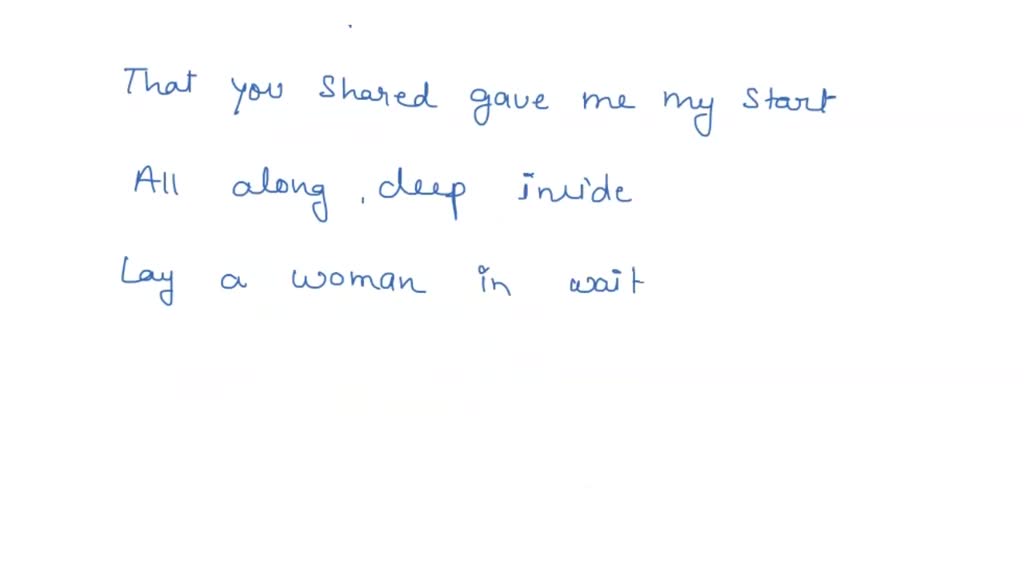 That you shared gave me my start
All along, deep inside
Lay a woman in wait